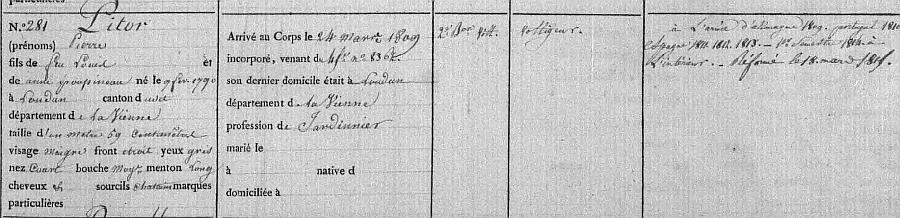 particulières
N.º 281 Pitor
(prénoms) Pierre
fils de feu Louis et
de anne né le 9 fév. 1790
à Loudun canton d udit
département de la Vienne
taille d'un mètre 69 centimètres
visage maigre front étroit yeux gris
nez Court bouche moy. menton Long
cheveux & sourcils chatains marques
particulières
Arrivé au Corps le 24 mars 1809
incorporé, venant de
son dernier domicile était à Loudun
département de la Vienne
profession de Jardinnier
marié le
à native d
domiciliée à
2e Bon
voltigeur.
à L'armée d'allemagne 1809. portugal 1810
Espagne 1811. 1812. 1813. — 1er semestre 1814 à
L'intérieur. — Réformé le 18 mars 1815.